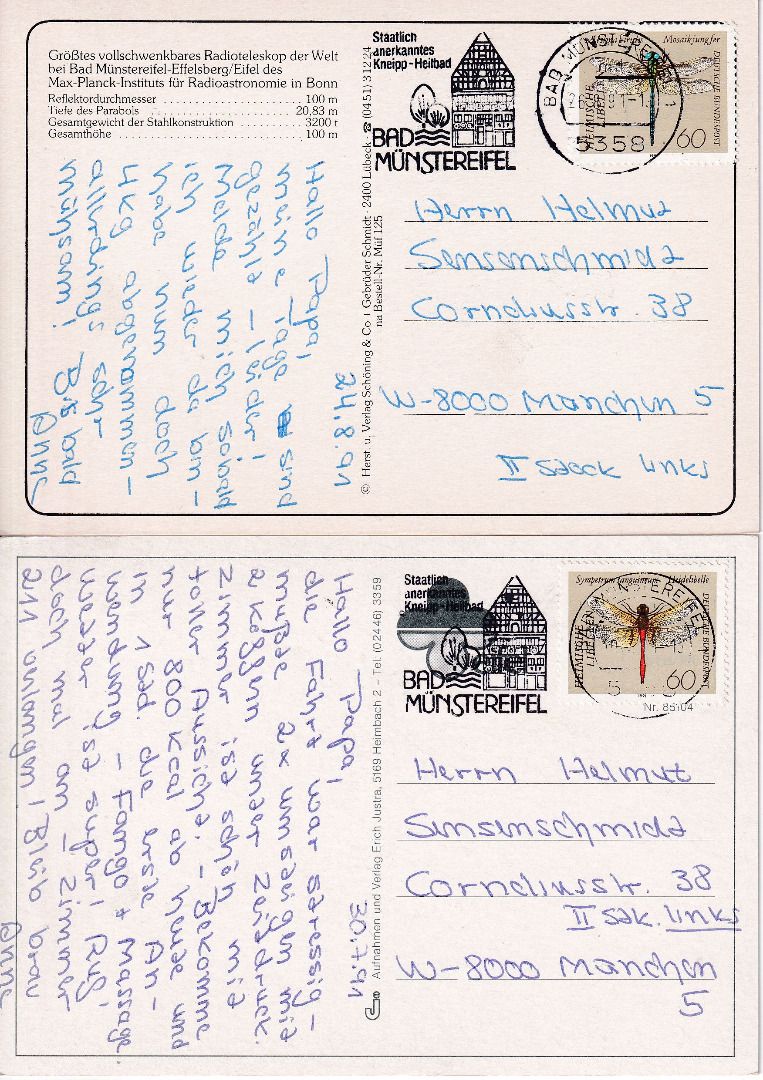 Größtes vollschwenkbares Radioteleskop der Welt
bei Bad Münstereifel-Effelsberg/Eifel des
Max-Planck-Instituts für Radioastronomie in Bonn
Reflektordurchmesser . . . . . . . . . . . . . . . . . . . . . . 100 m
Tiefe des Parabols . . . . . . . . . . . . . . . . . . . . . . 20,83 m
Gesamtgewicht der Stahlkonstruktion . . . . . . . . . . 3200 t
Gesamthöhe . . . . . . . . . . . . . . . . . . . . . . . . . . . 100 m
24.8.91
Hallo Papa,
meine Tage sind
gezählt – leider!
Melde mich sobald
ich wieder da bin –
habe nun doch
4kg abgenommen –
allerdings sehr
mühsam! Bis bald
Anne
© Herst. u. Verlag Schöning & Co + Gebrüder Schmidt · 2400 Lübeck · ☎ (0451) 31224
na Bestell-Nr. Müf 125
Staatlich
anerkanntes
Kneipp-Heilbad
BAD
MÜNSTEREIFEL
BAD MÜNSTEREIFEL
5358
Mosaikjungfer
HEIMISCHE
LIBELLEN
DEUTSCHE BUNDESPOST
60
Herrn Helmut
Sensenschmidt
Corneliusstr. 38
W-8000 München 5
II Stock links
30.7.91
Hallo Papa,
die Fahrt war stressig –
mußte 2x umsteigen mit
2 Koffern unter Zeitdruck.
Zimmer ist schön mit
toller Aussicht. – Bekomme
nur 800 kcal ab heute und
in 1 Std. die erste An-
wendung – Fango + Massage
Wetter ist super! Ruf
doch mal an – Zimmer
211 verlangen! Bleib brav
Anne
Aufnahmen und Verlag Erich Justra, 5169 Heimbach 2 – Tel. (02446) 3359
Staatlich
anerkanntes
Kneipp-Heilbad
BAD
MÜNSTEREIFEL
Sympetrum sanguineum Heidelibelle
HEIMISCHE
LIBELLEN
DEUTSCHE BUNDESPOST
60
Nr. 85104
Herrn Helmut
Sensenschmidt
Corneliusstr. 38
II Stk. links
W-8000 München
5